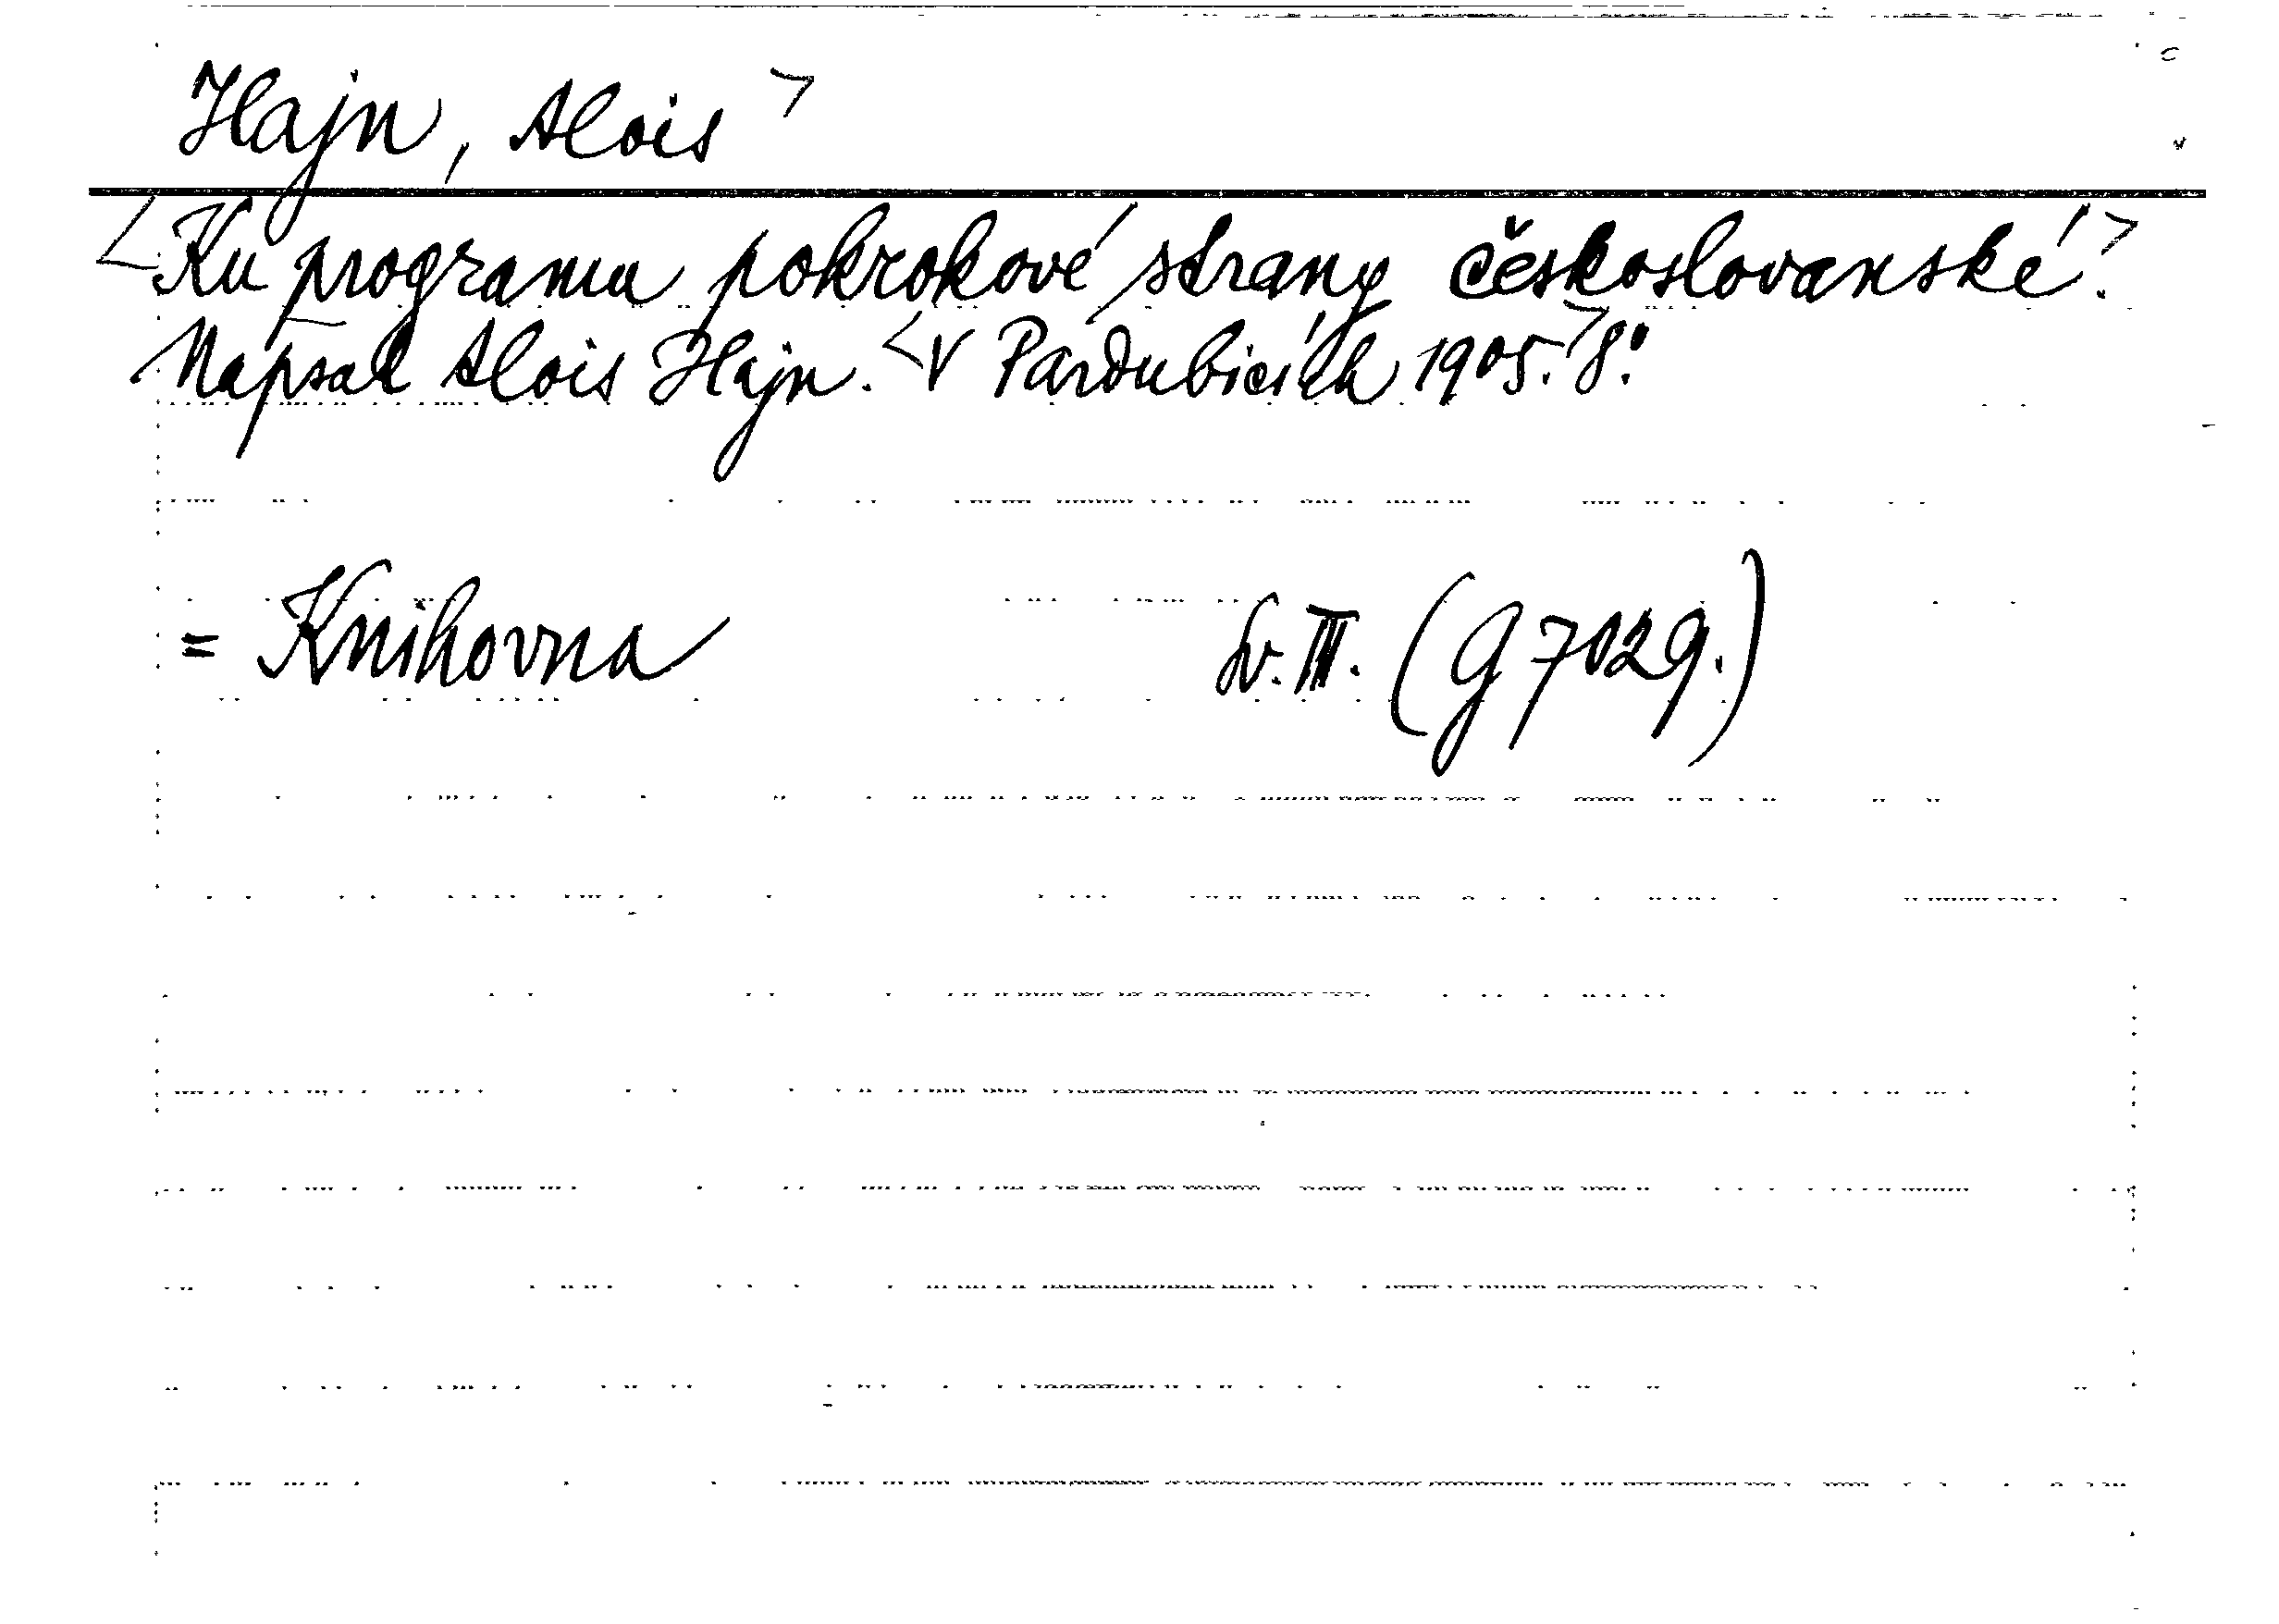 Hajn, Alois
Ku programu pokrokové strany českoslovanské.
Napsal Alois Hajn. V Pardubicích 1905. 8°.
= Knihovna Sv. III. (G 7029.)